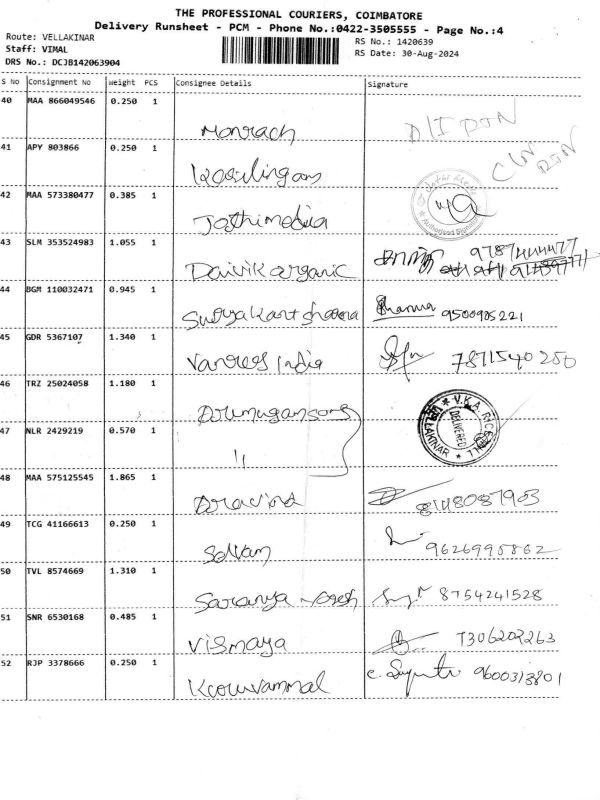 THE PROFESSIONAL COURIERS, COIMBATORE
Delivery Runsheet - PCM - Phone No.:0422-3505555 - Page No.:4
Route: VELLAKINAR
RS No.: 1420639
Staff: VIMAL
RS Date: 30-Aug-2024
DRS No.: DCJB142063904
S No Consignment No weight PCS Consignee Details Signature
40 MAA 866049546 0.250 1
Monrach
41 APY 803866 0.250 1
Kasilingam
42 MAA 573380477 0.385 1
Jothimedia
43 SLM 353524983 1.055 1
Daivik organic 9787444477
44 BGM 110032471 0.945 1
Suryakant sharma Sharma 9500905221
45 GDR 5367107 1.340 1
Vanrees India 7871540250
46 TRZ 25024058 1.180 1
V.K.A. RICE MILL * VELLAKINAR *
DELIVERED
47 NLR 2429219 0.570 1
11
48 MAA 575125545 1.865 1
Aravind 8148087903
49 TCG 41166613 0.250 1
Selvam 9626995862
50 TVL 8574669 1.310 1
Saranya 8754241528
51 SNR 6530168 0.485 1
Vismaya 7306202263
52 RJP 3378666 0.250 1
9600313801